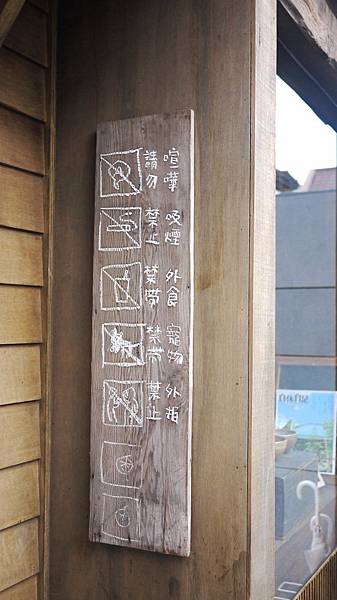 請勿喧嘩
禁止吸煙
禁帶外食
禁帶寵物
禁止外拍